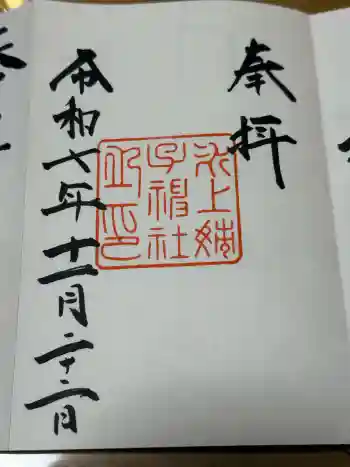 奉拝
氷上姉
子神社
令和六年十一月二十二日